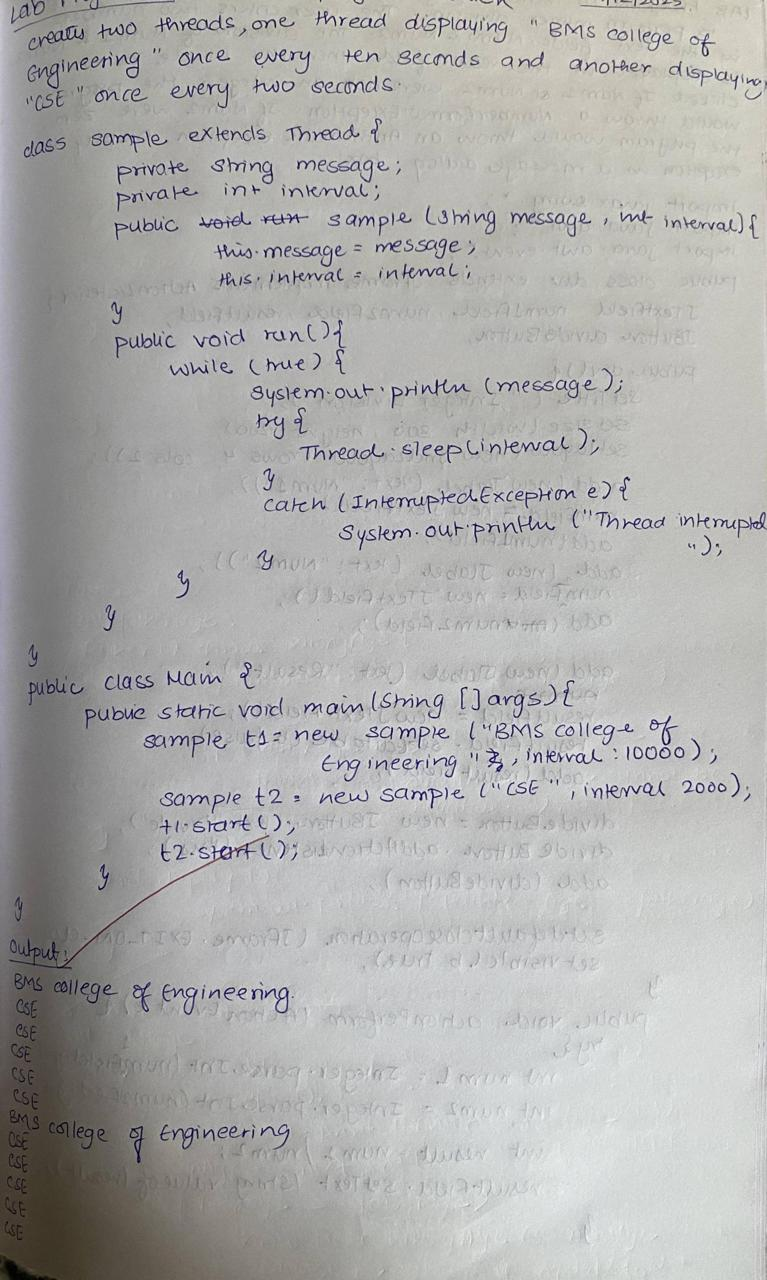 Lab
creates two threads, one thread displaying "BMS college of
Engineering" once every ten seconds and another displaying
"CSE" once every two seconds.
class sample extends Thread {
private string message;
private int interval;
public void run sample (string message, int interval){
this.message = message;
this.interval = interval;
}
public void run(){
while (true) {
System.out.println (message);
try {
Thread.sleep(interval);
}
catch (InterruptedException e){
System.out.println ("Thread interrupted
");
}
}
}
}
public class Main {
public static void main(string [] args){
sample t1 = new sample ("BMS college of
Engineering", interval : 10000);
sample t2 = new sample ("CSE", interval 2000);
t1.start();
t2.start();
}
}
Output:
BMS college of Engineering.
CSE
CSE
CSE
CSE
CSE
BMS college of Engineering
CSE
CSE
CSE
CSE
CSE